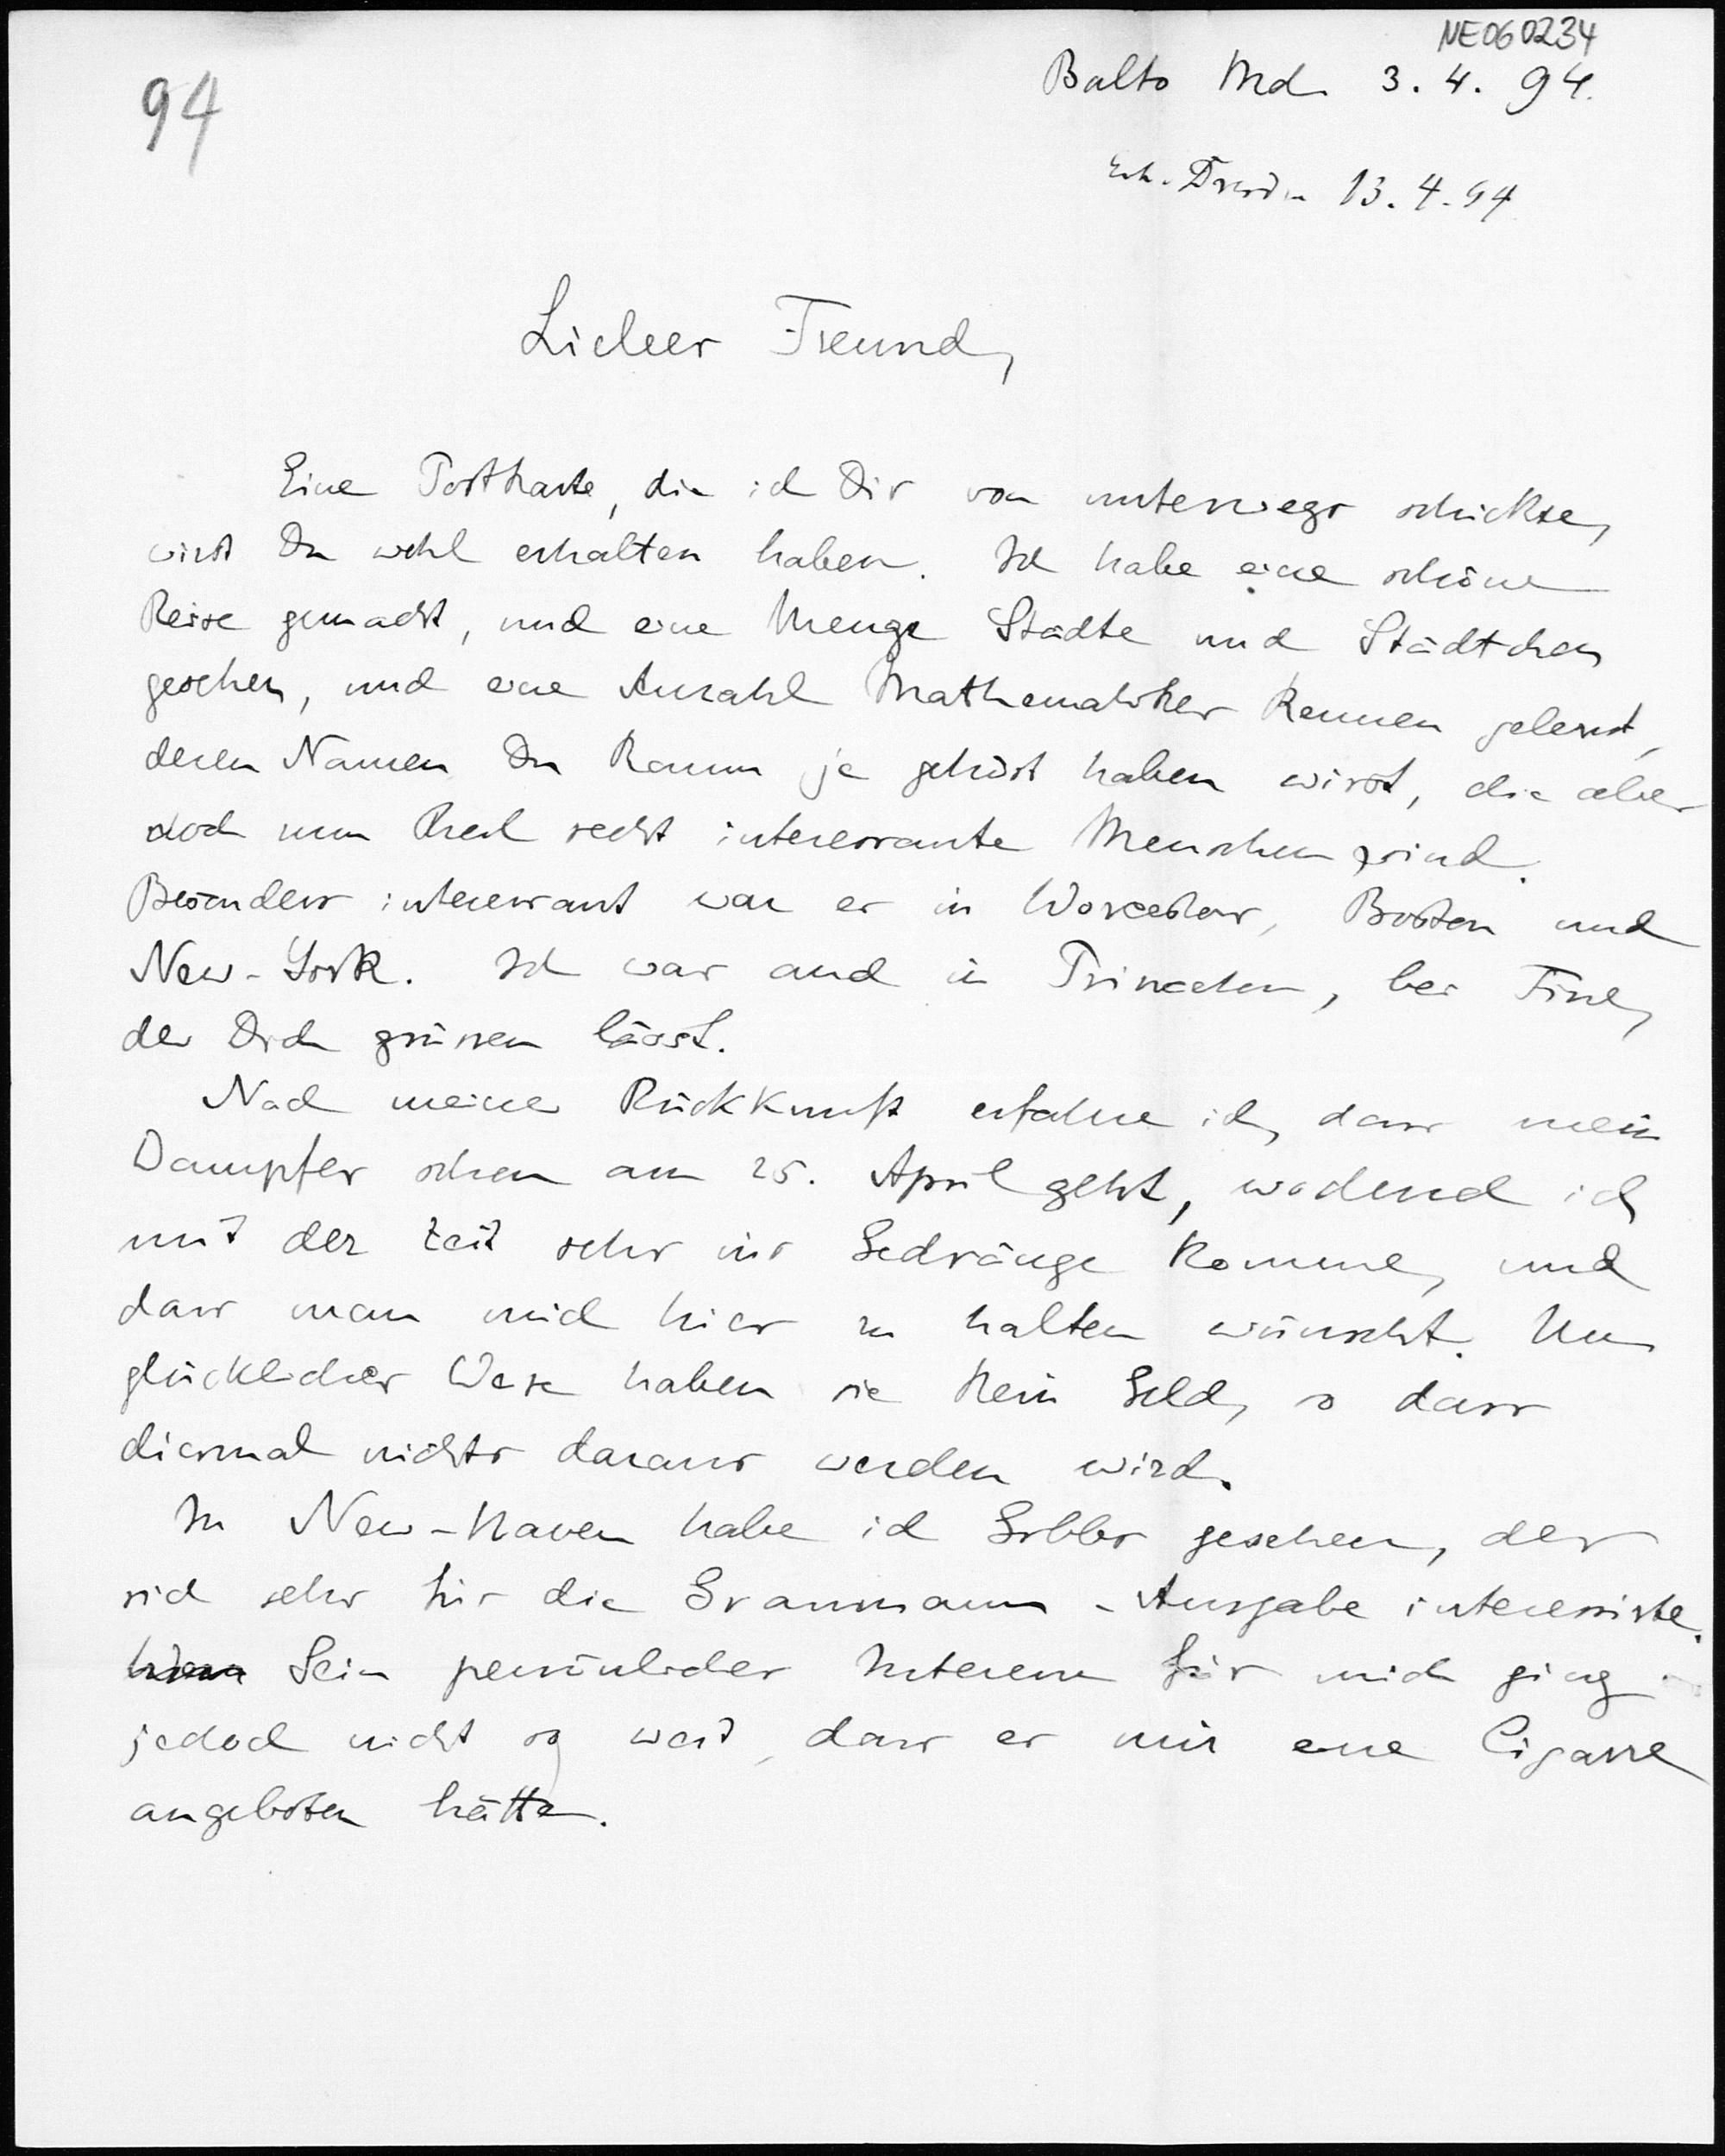 NE060234
94
Balto Md. 3. 4. 94.
Erh. Dresden 13.4.94
Lieber Freund,
Eine Postkarte, die ich Dir von unterwegs schickte,
wirst Du wohl erhalten haben. Ich habe eine schöne
Reise gemacht, und eine Menge Städte und Städtchen
gesehen, und eine Anzahl Mathematiker kennen gelernt,
deren Namen Du kaum je gehört haben wirst, die aber
doch zum Theil recht interessante Menschen sind.
Besonders interessant war es in Worcester, Boston und
New-York. Ich war auch in Princeton, bei Fine,
der Dich grüssen lässt.
Nach meiner Rückkunft erfahre ich, dass mein
Dampfer schon am 25. April geht, wodurch ich
mit der Zeit sehr ins Gedränge komme, und
dass man mich hier zu halten wünscht. Un
glücklicher Weise haben sie kein Geld, so dass
diesmal nichts daraus werden wird.
In New-Haven habe ich Gibbs gesehen, der
sich sehr für die Grassmann-Ausgabe interessirte.
Sein persönliches Interesse für mich ging
jedoch nicht so weit, dass er mir eine Cigarre
angeboten hätte.